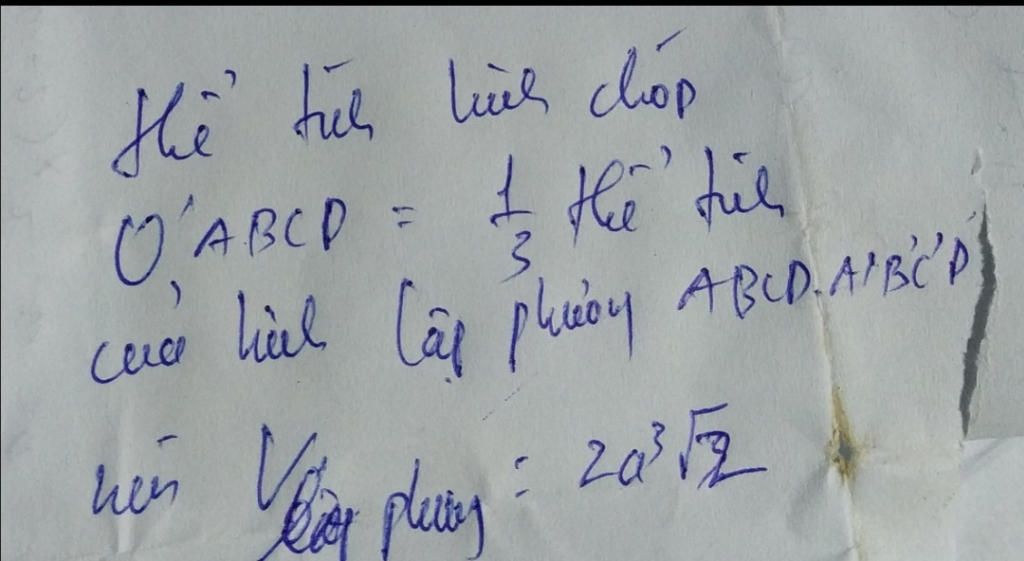 thể tích hình chóp
O'ABCD = 1/3 thể tích
của hình lập phương ABCD.A'B'C'D'
nên V lập phương = 2a³√2